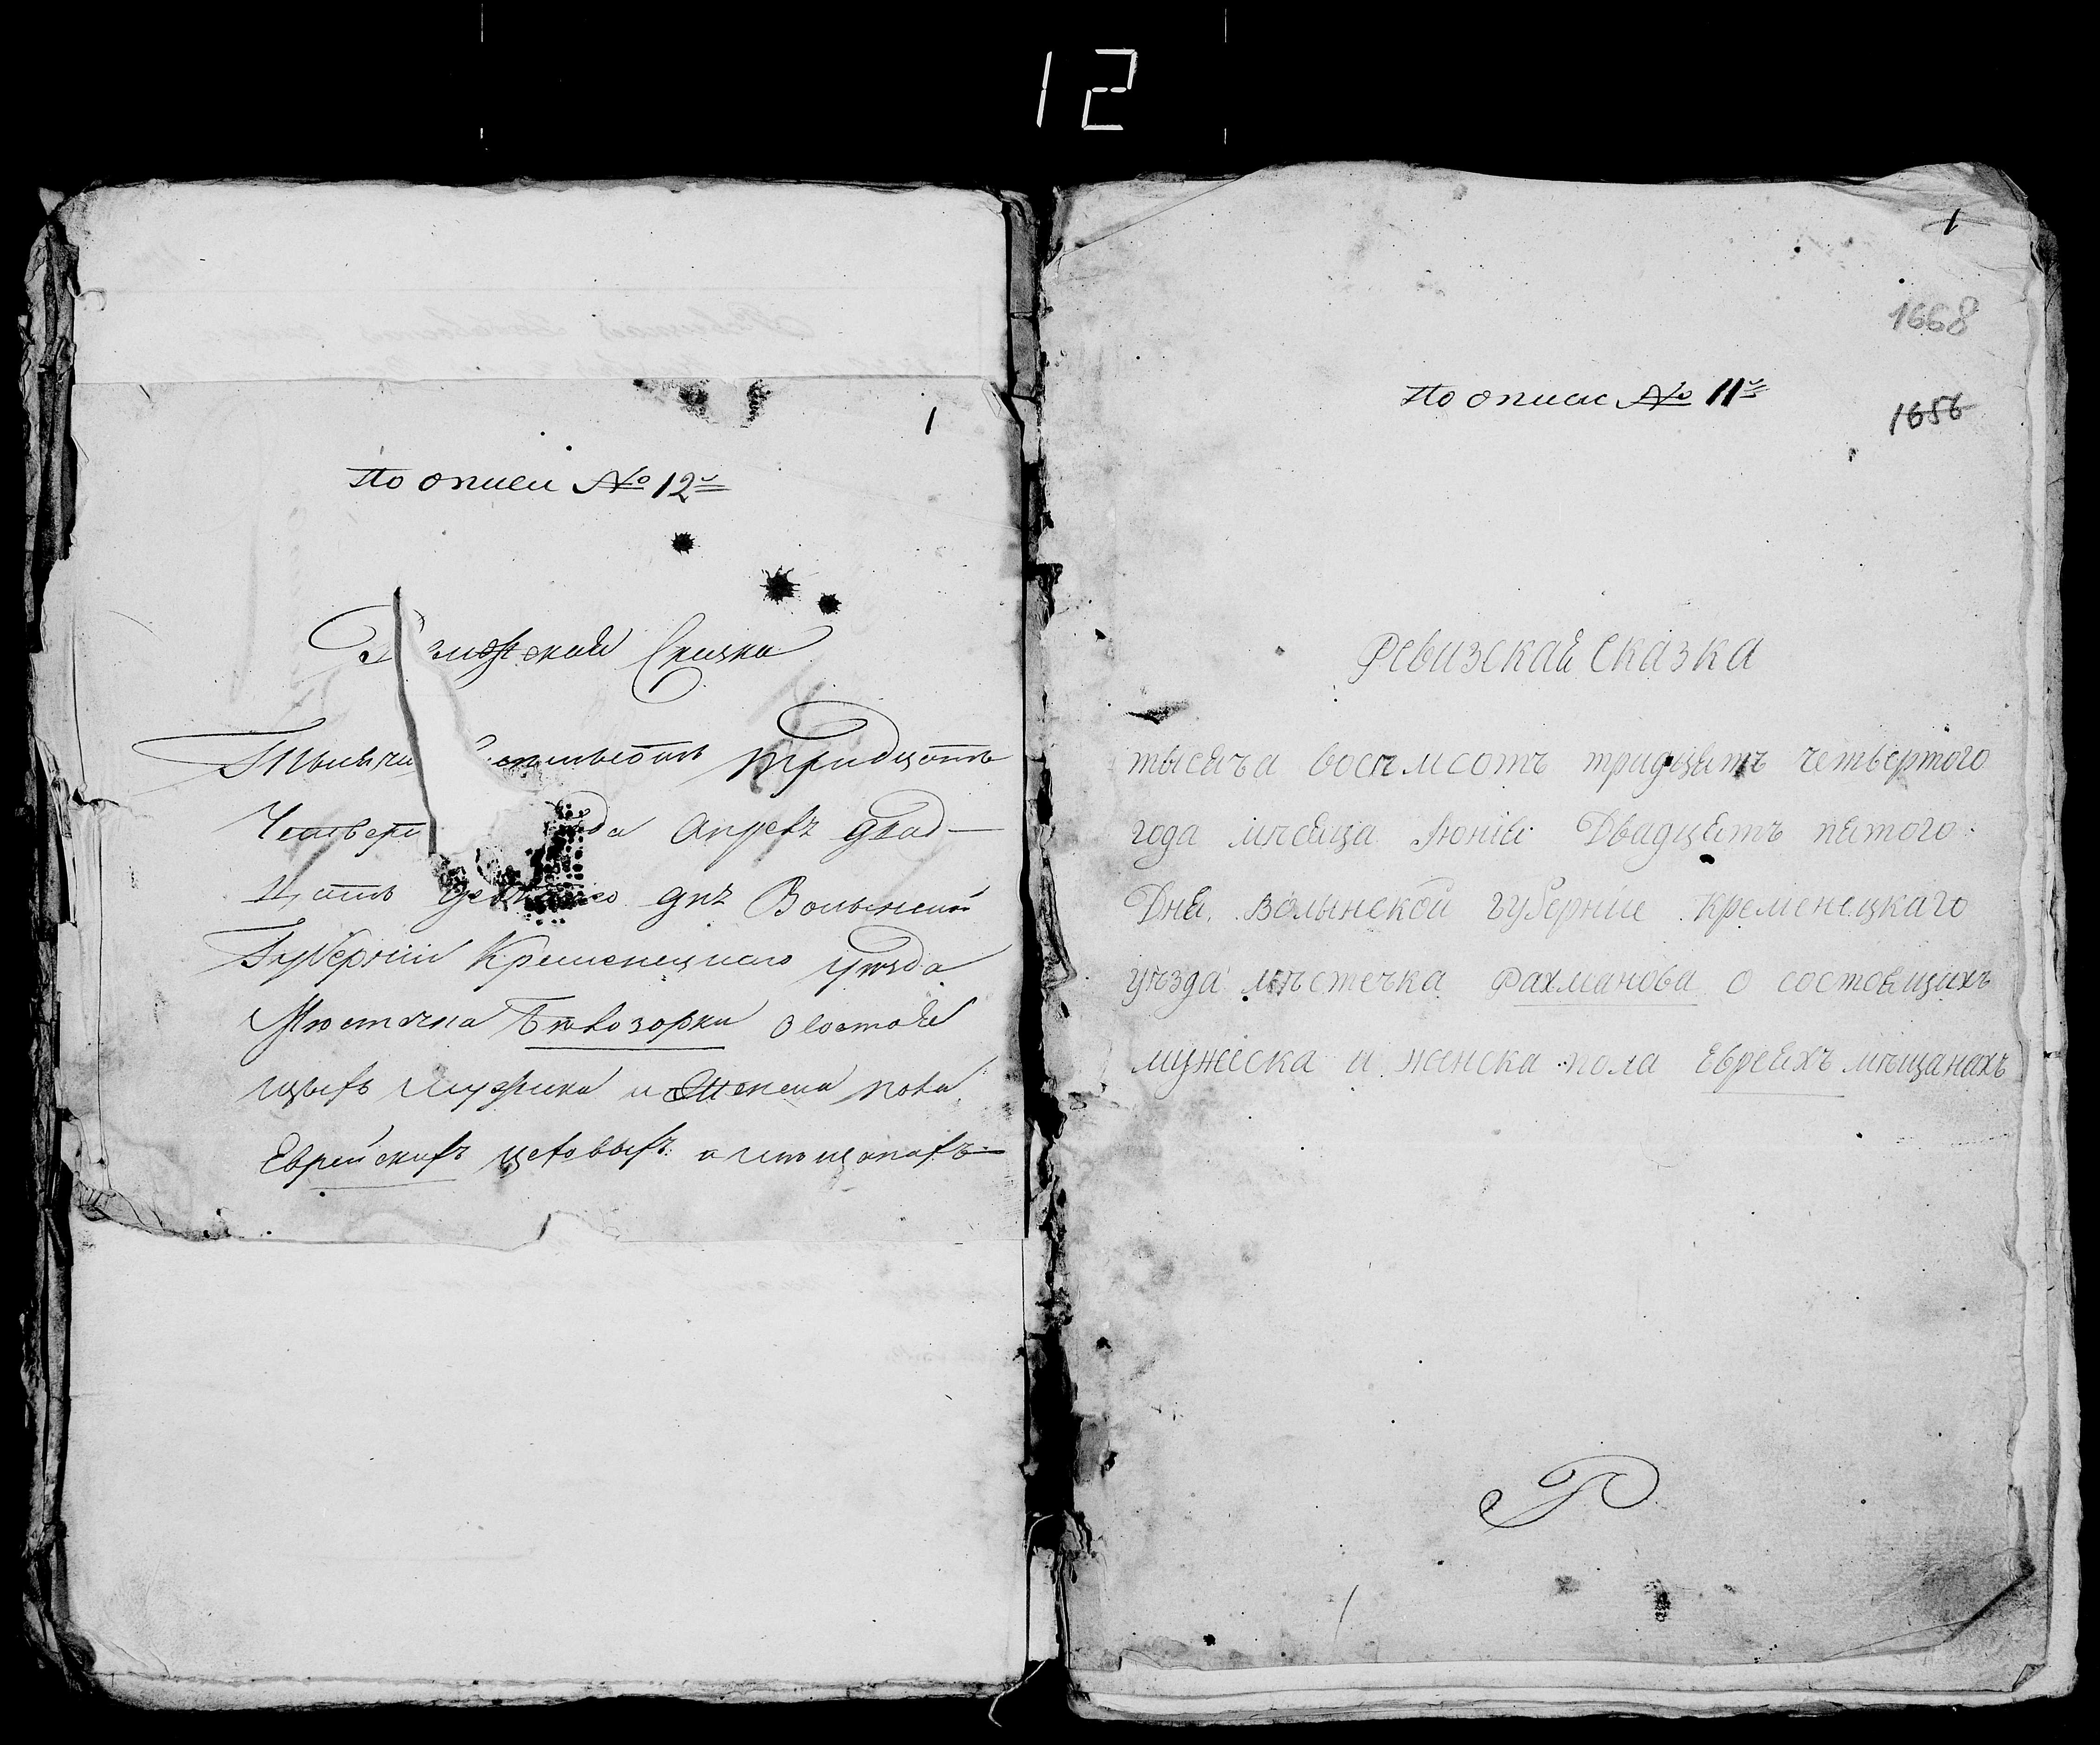 12
1
По описи № 12й
Сказка
тридцать
да Апреля двад-
цать дня Волынской
Губернии Кременецкаго уезда
Местечка Белозорки о состоя
щихъ мужеска и женска пола
Еврейскихъ цеховыхъ и мещанахъ
1
1668
По описи № 11й
1656
Ревизская Сказка
тысяча восемсотъ тридцять четвертого
года месяца Июнія Двадцять пятого
Дня Волынской губерніи Кременецкаго
уѣзда мѣстечка Рахманова о состоящихъ
мужеска и женска пола Евреяхъ мѣщанахъ